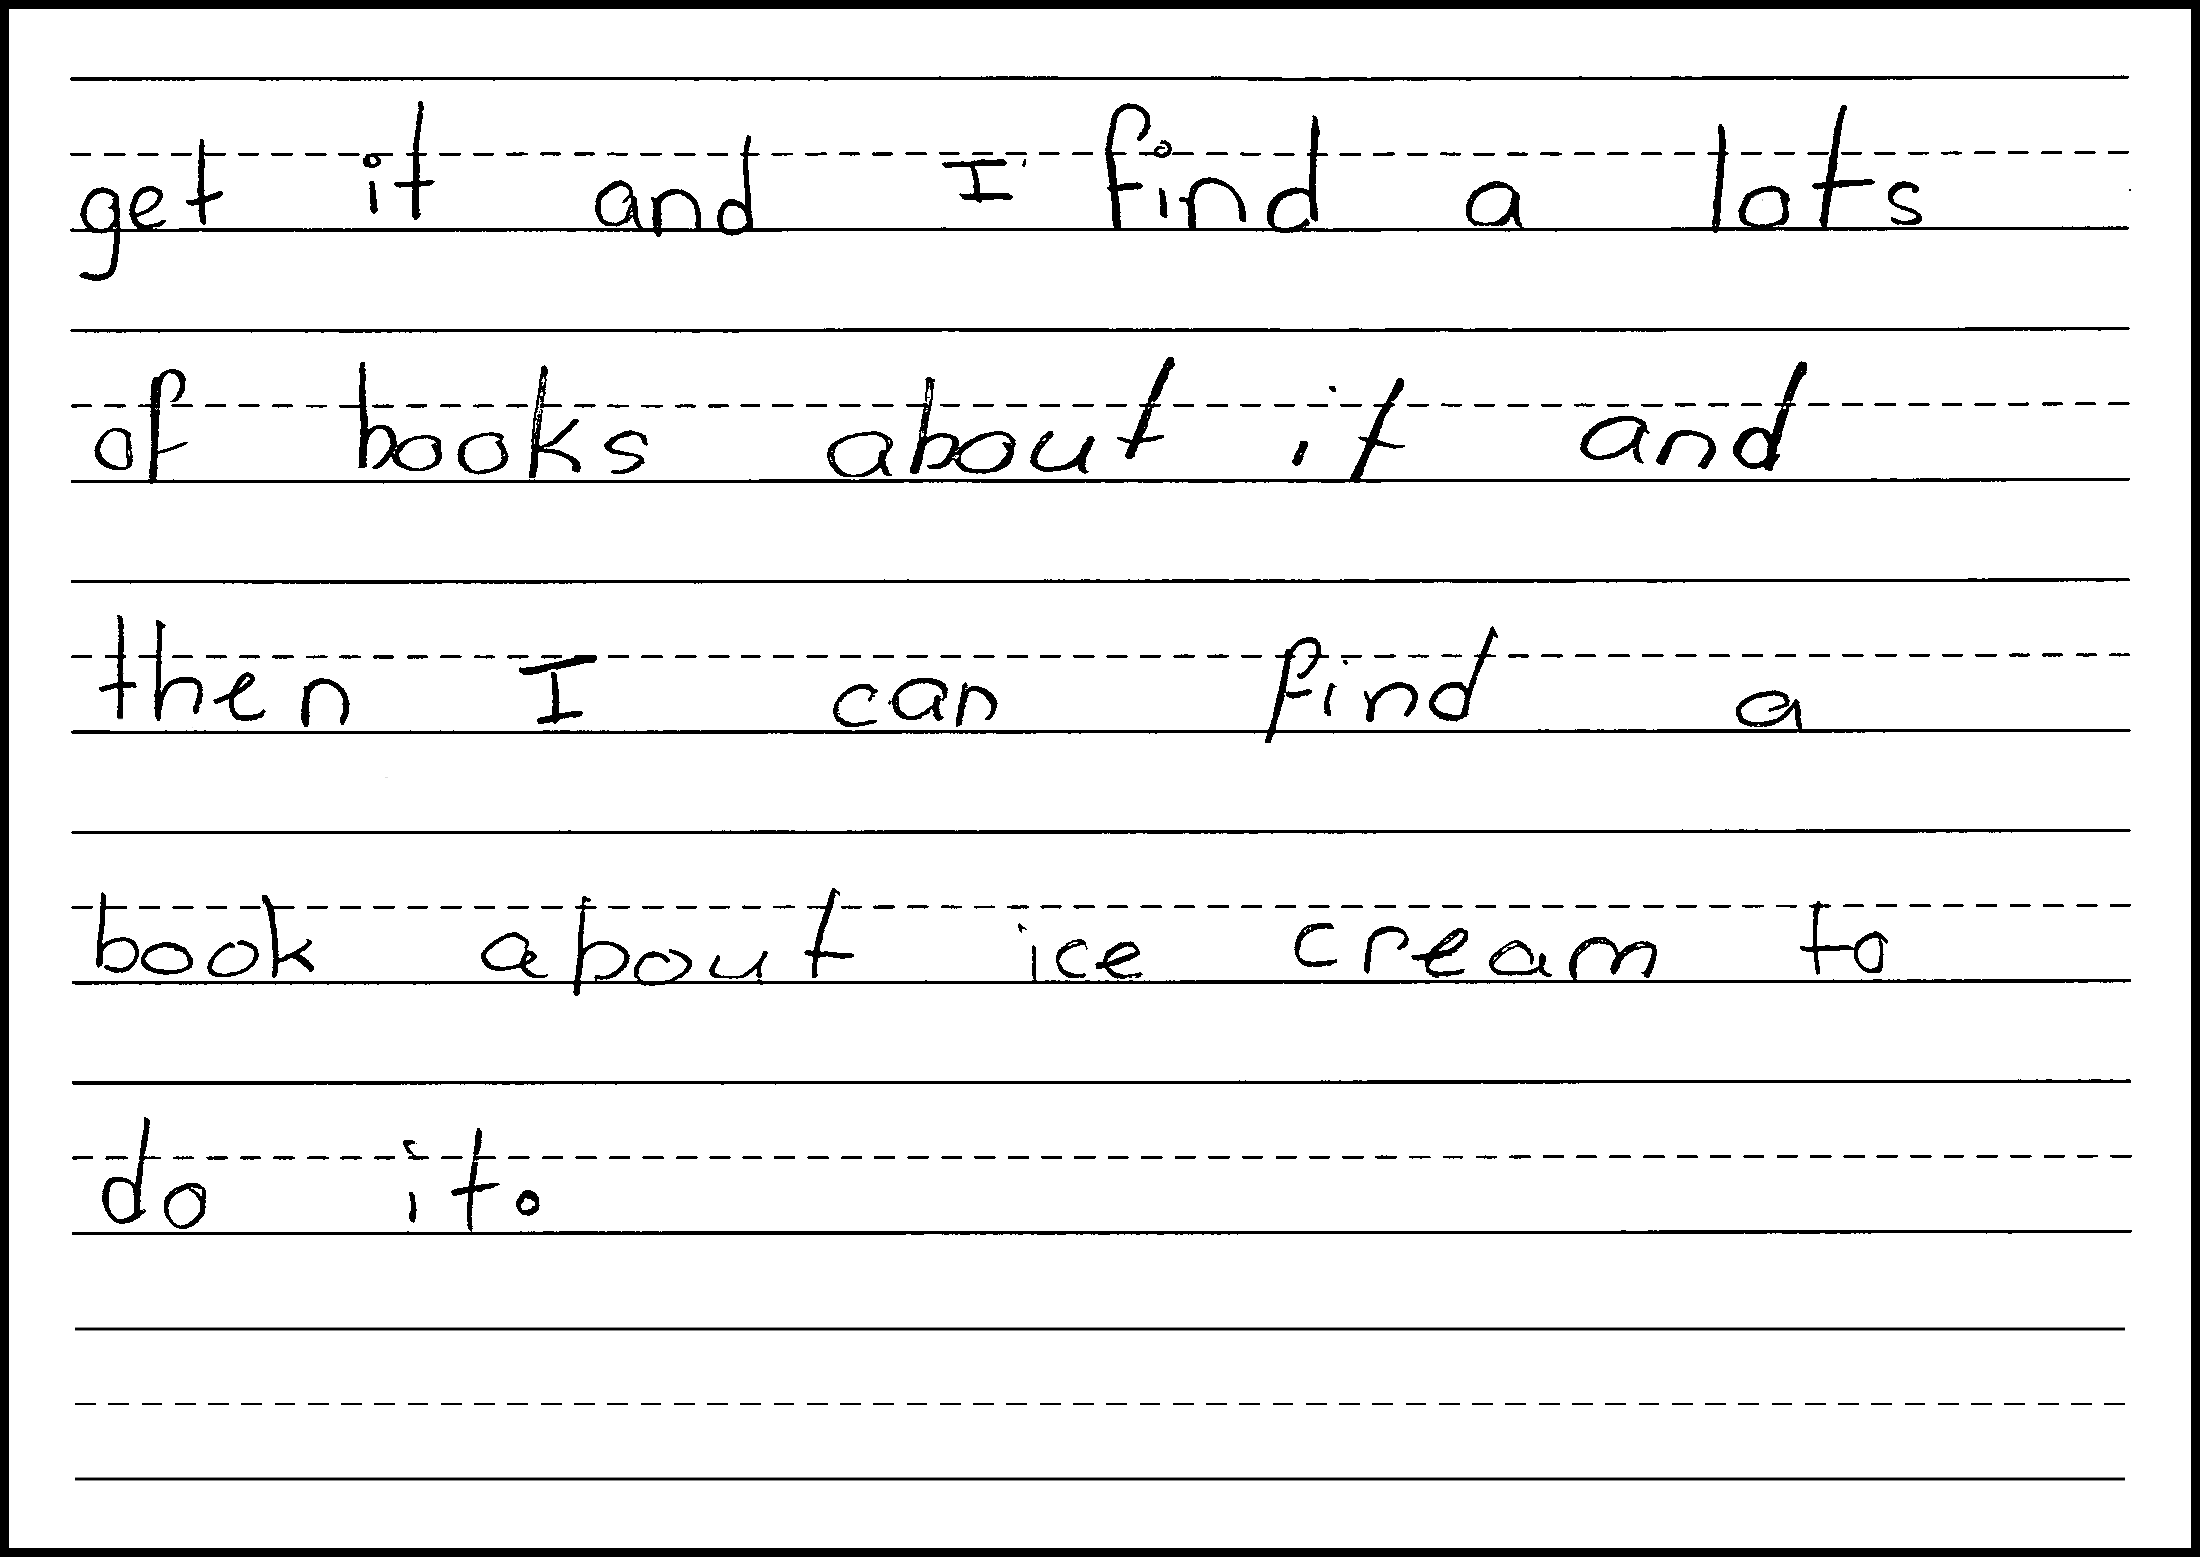 get it and I find a lots
of books about it and
then I can find a
book about ice cream to
do it.